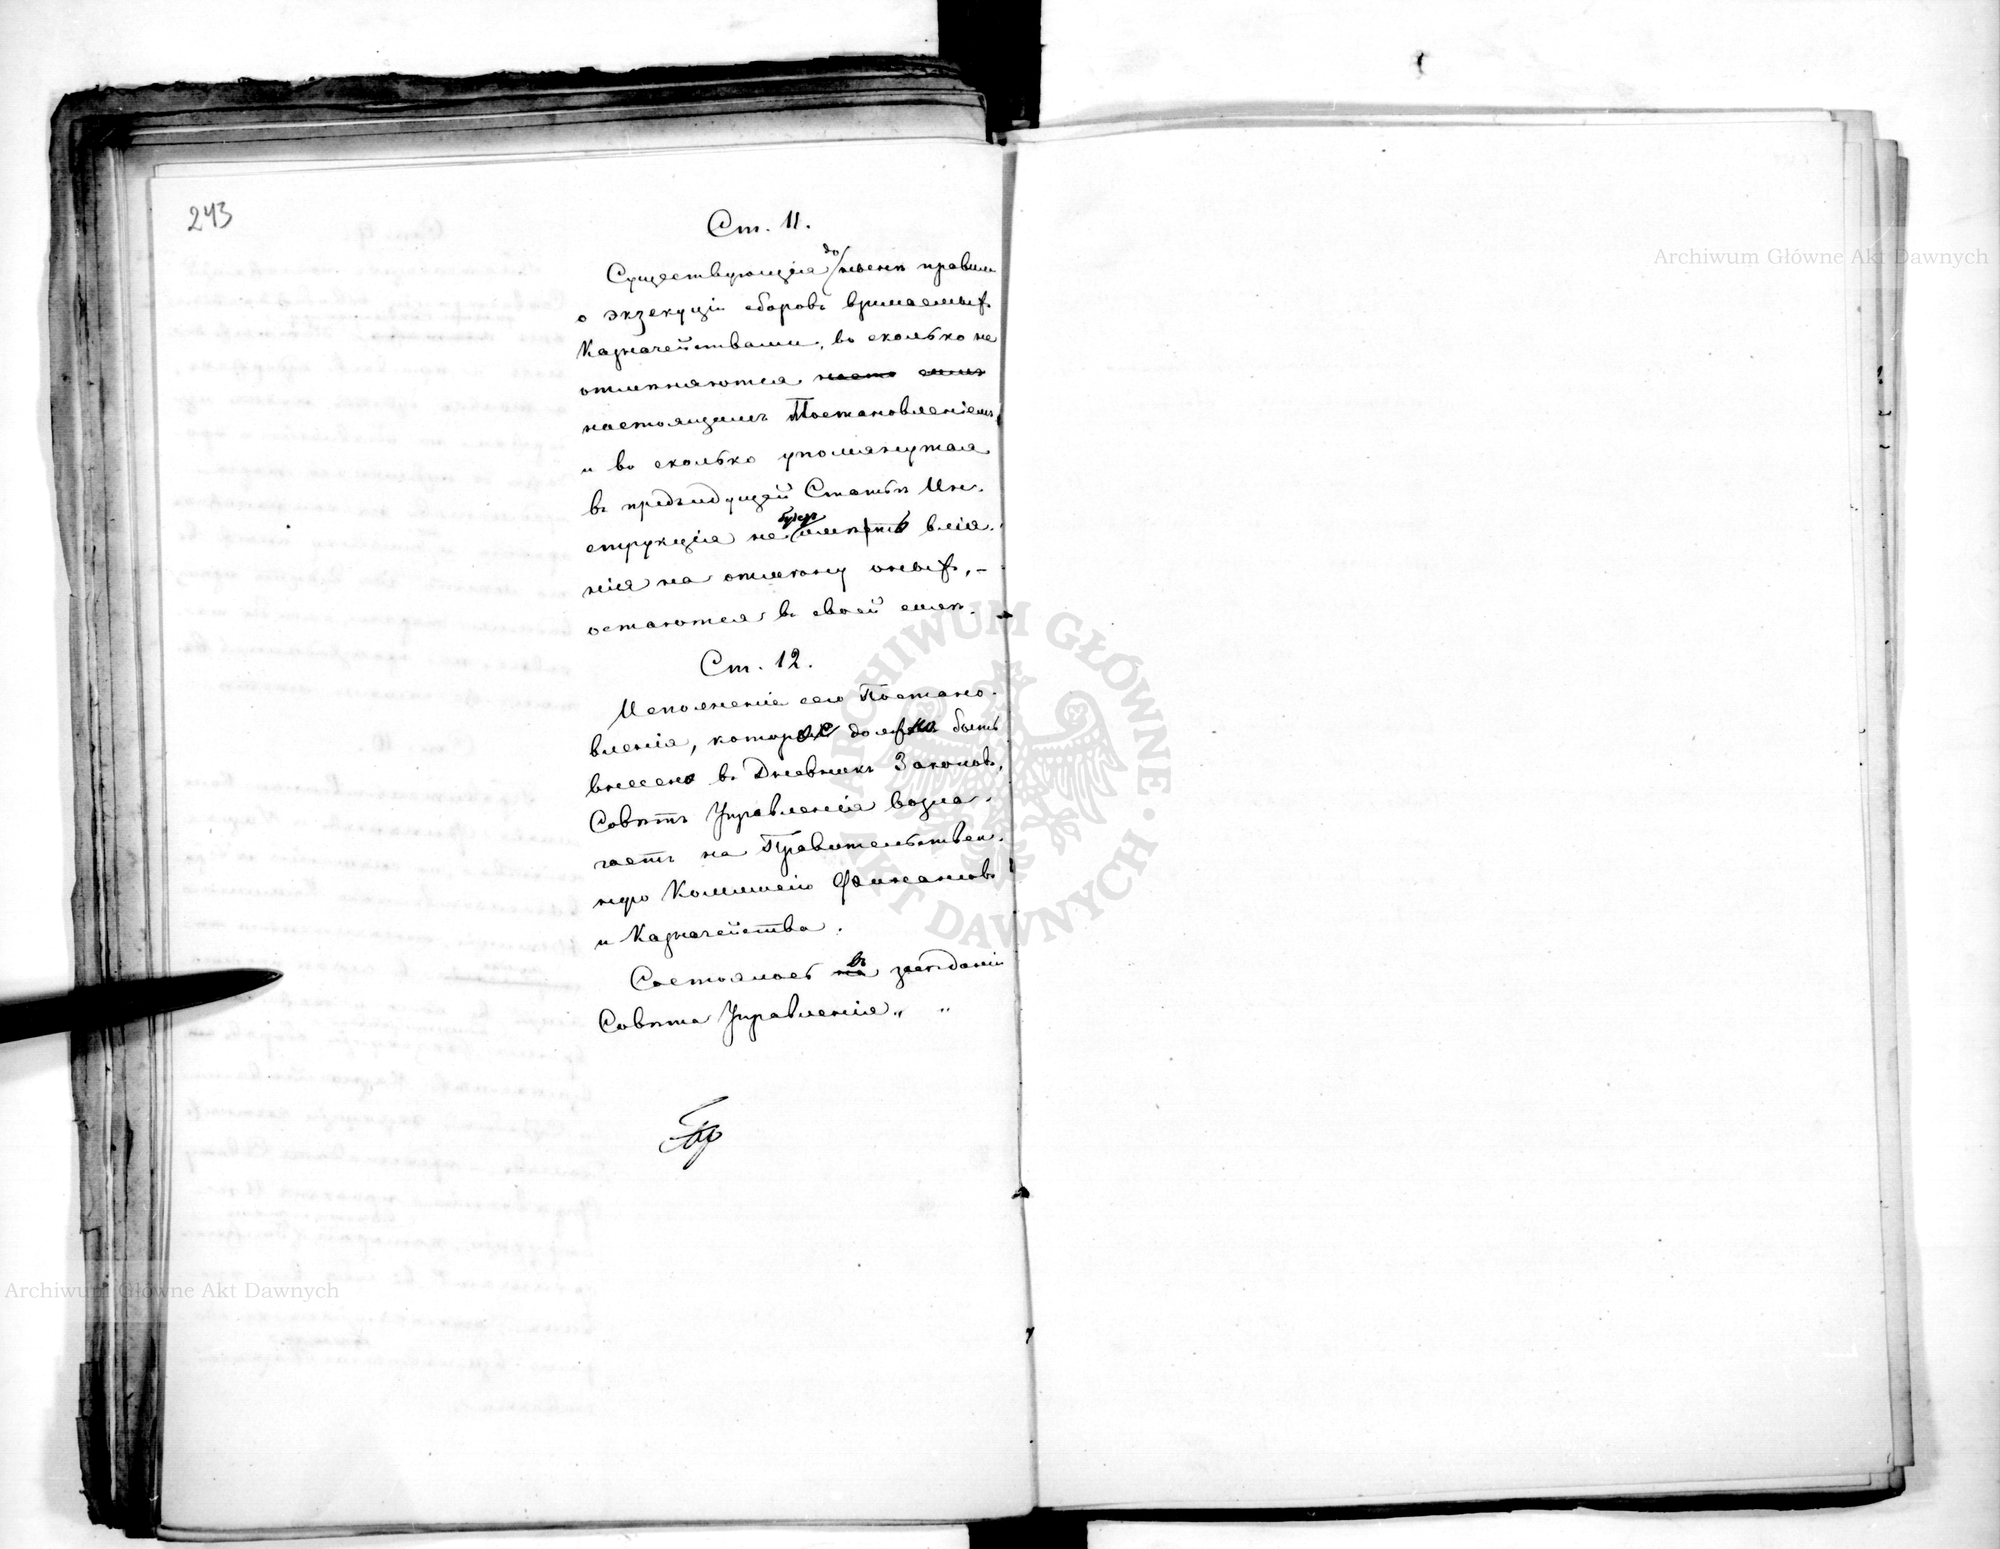 243
Ст. 11.
до
Существующія нынѣ правила
о экзекуціи сборовъ взимаемыхъ
Казначействами, во сколько не
отмѣняются
настоящимъ Постановленіемъ,
и во сколько упомянутая
въ предъидущей Статьѣ Ин-
будетъ
струкція не имѣть влія-
нія на отмѣну оныхъ, -
остаются въ своей силѣ.
Ст. 12.
Исполненіе сего Постано-
вленія, которое должно быть
внесено въ Дневникъ Законовъ,
Совѣтъ Управленія возла-
гаетъ на Правительствен-
ную Коммисію Финансовъ
и Казначейства.
въ
Состоялось на засѣданіи
Совѣта Управленія „ „
Archiwum Główne Akt Dawnych
Archiwum Główne Akt Dawnych
ARCHIWUM GŁÓWNE AKT DAWNYCH